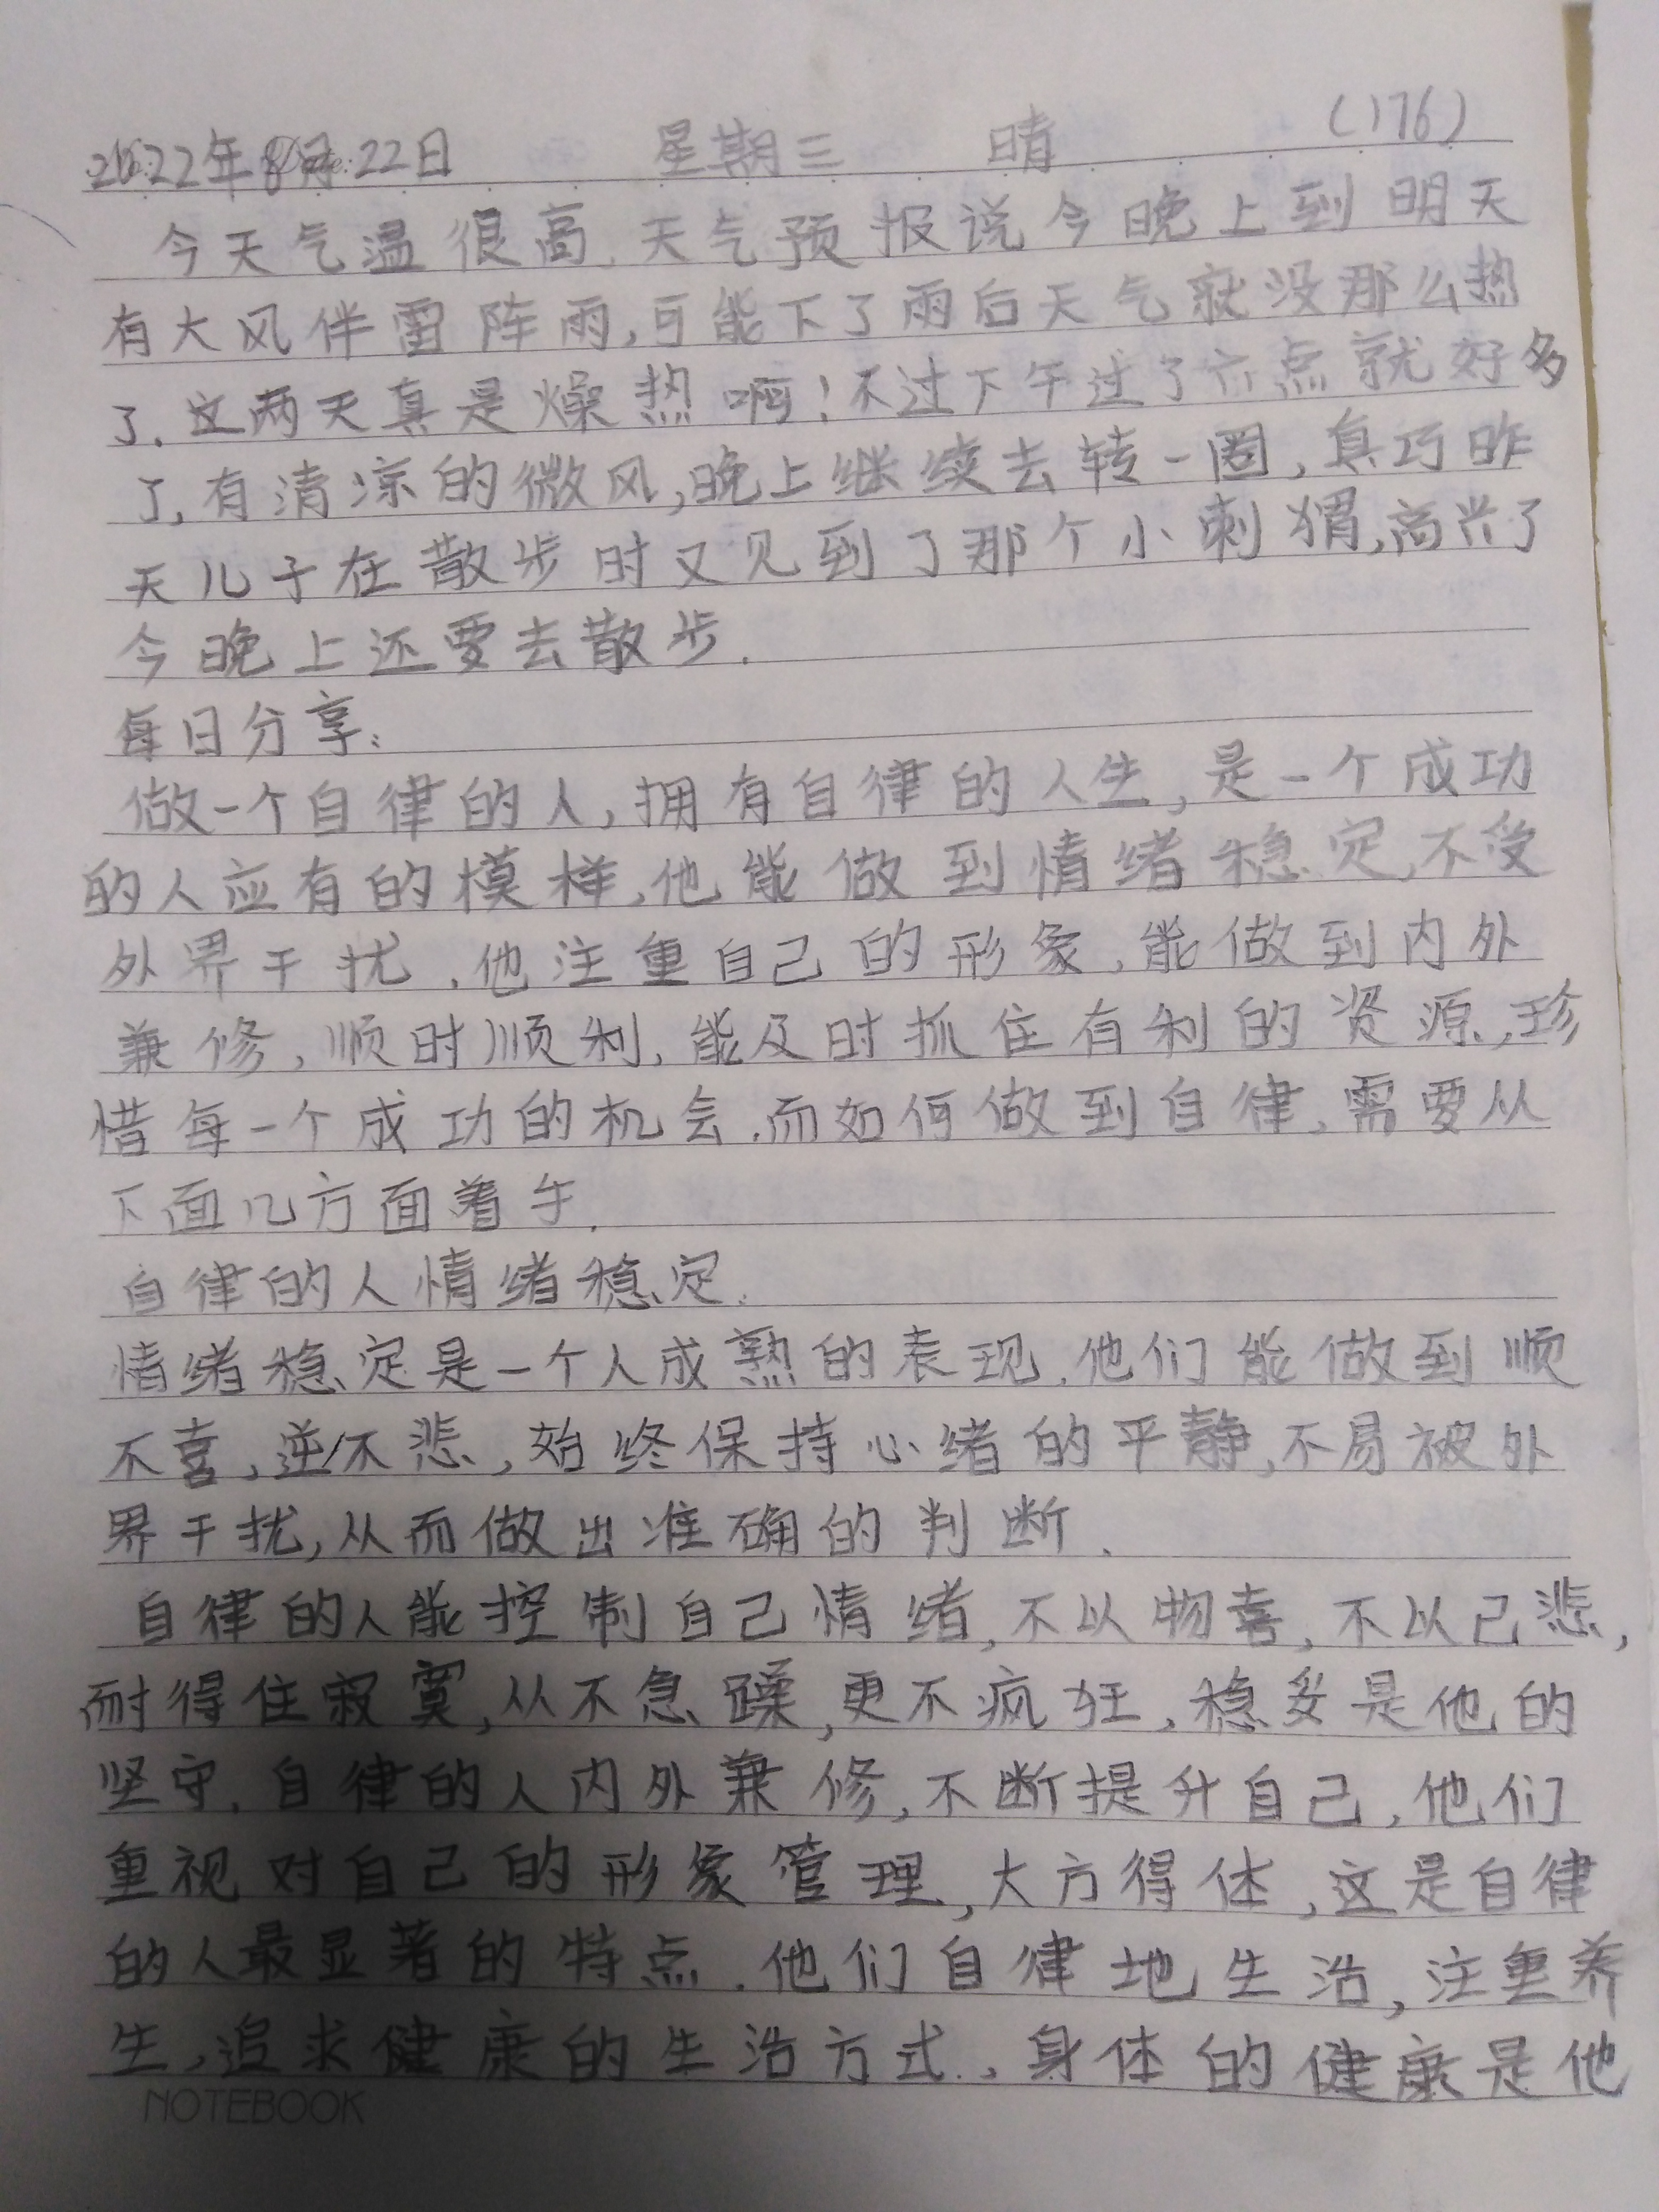 2022年8月22日 星期三 晴 (176)
今天气温很高.天气预报说今晚上到明天
有大风伴雷阵雨,可能下了雨后天气就没那么热
了.这两天真是燥热啊!不过下午过了六点就好多
了,有清凉的微风,晚上继续去转一圈,真巧昨
天儿子在散步时又见到了那个小刺猬,高兴了
今晚上还要去散步.
每日分享:
做一个自律的人,拥有自律的人生,是一个成功
的人应有的模样,他能做到情绪稳定,不受
外界干扰.他注重自己的形象,能做到内外
兼修,顺时顺利,能及时抓住有利的资源,珍
惜每一个成功的机会.而如何做到自律,需要从
下面几方面着手.
自律的人情绪稳定.
情绪稳定是一个人成熟的表现.他们能做到顺
不喜,逆不悲,始终保持心绪的平静,不易被外
界干扰,从而做出准确的判断.
自律的人能控制自己情绪,不以物喜,不以己悲,
耐得住寂寞,从不急躁,更不疯狂,稳妥是他的
坚守.自律的人内外兼修,不断提升自己,他们
重视对自己的形象管理,大方得体,这是自律
的人最显著的特点.他们自律地生活,注重养
生,追求健康的生活方式.,身体的健康是他
NOTEBOOK